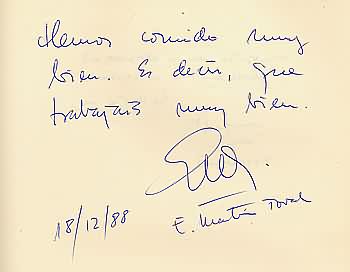 Hemos comido muy
bien. Es decir, que
trabajais muy bien.
18/12/88
E. Martín Toval